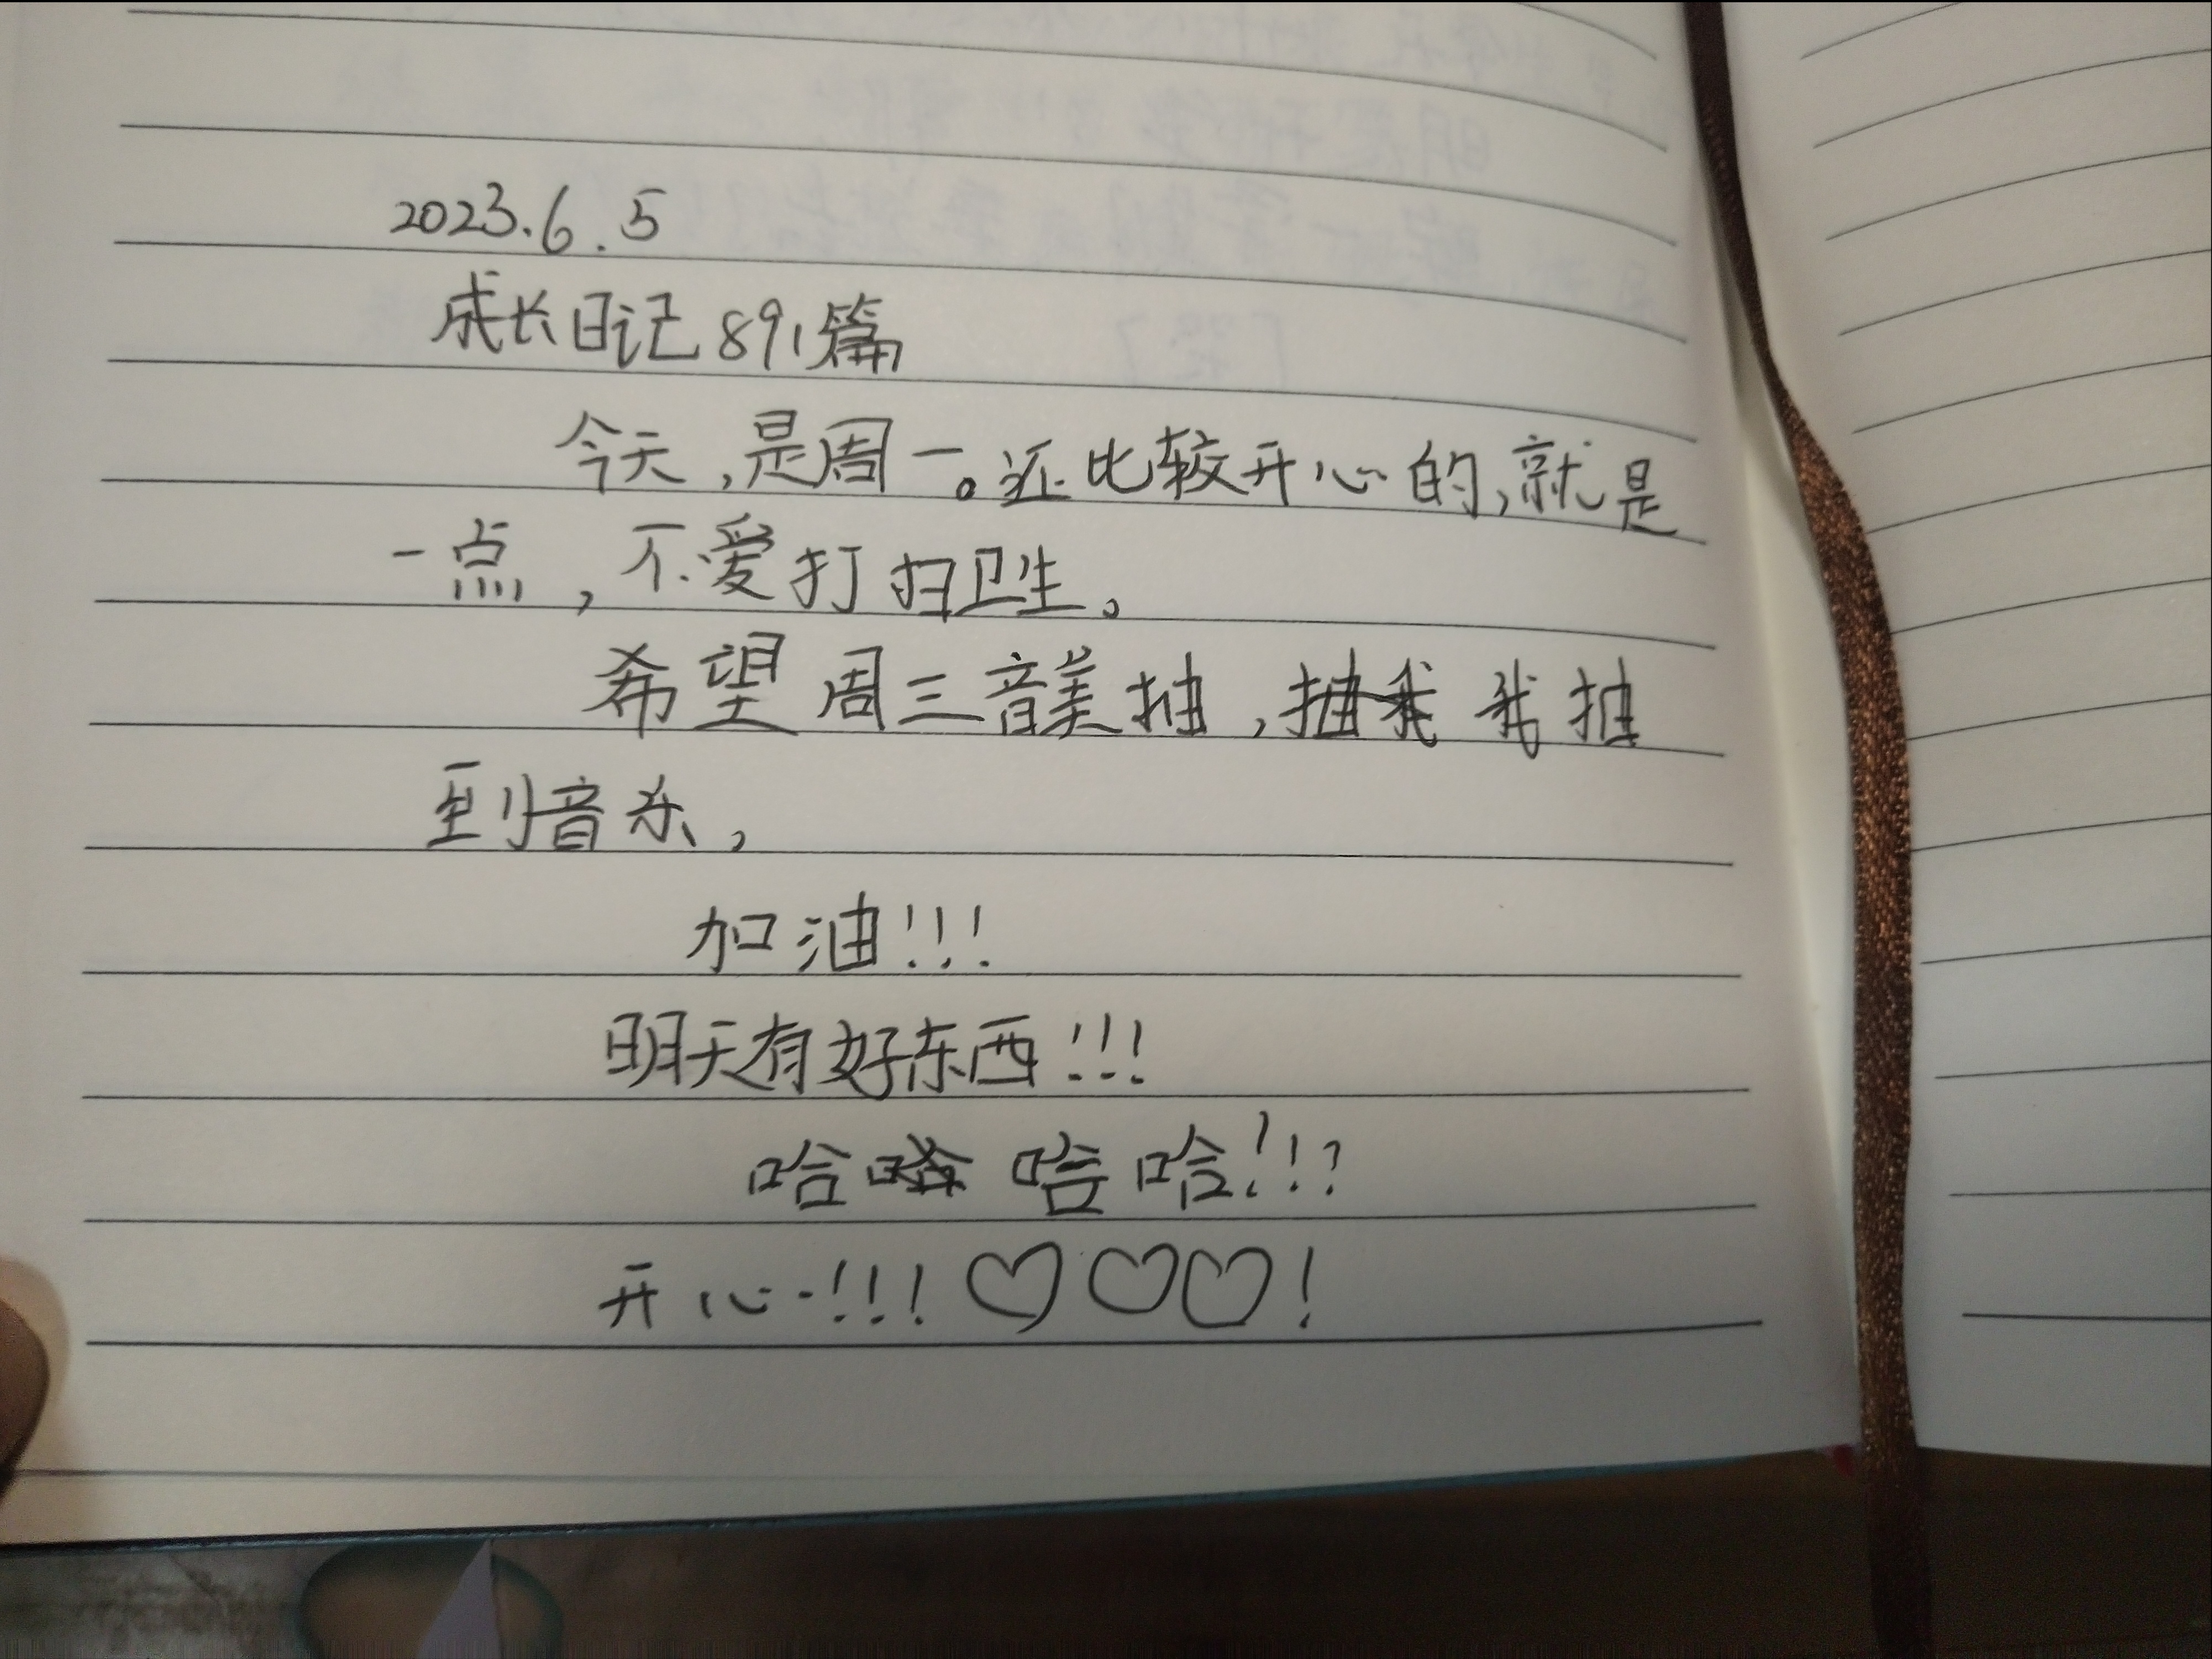 2023.6.5
成长日记891篇
今天,是周一。还比较开心的,就是
一点,不爱打扫卫生。
希望周三音美抽,抽我我抽
到音乐,
加油!!!
明天有好东西!!!
哈哈哈哈!!?
开心!!!♡♡♡!